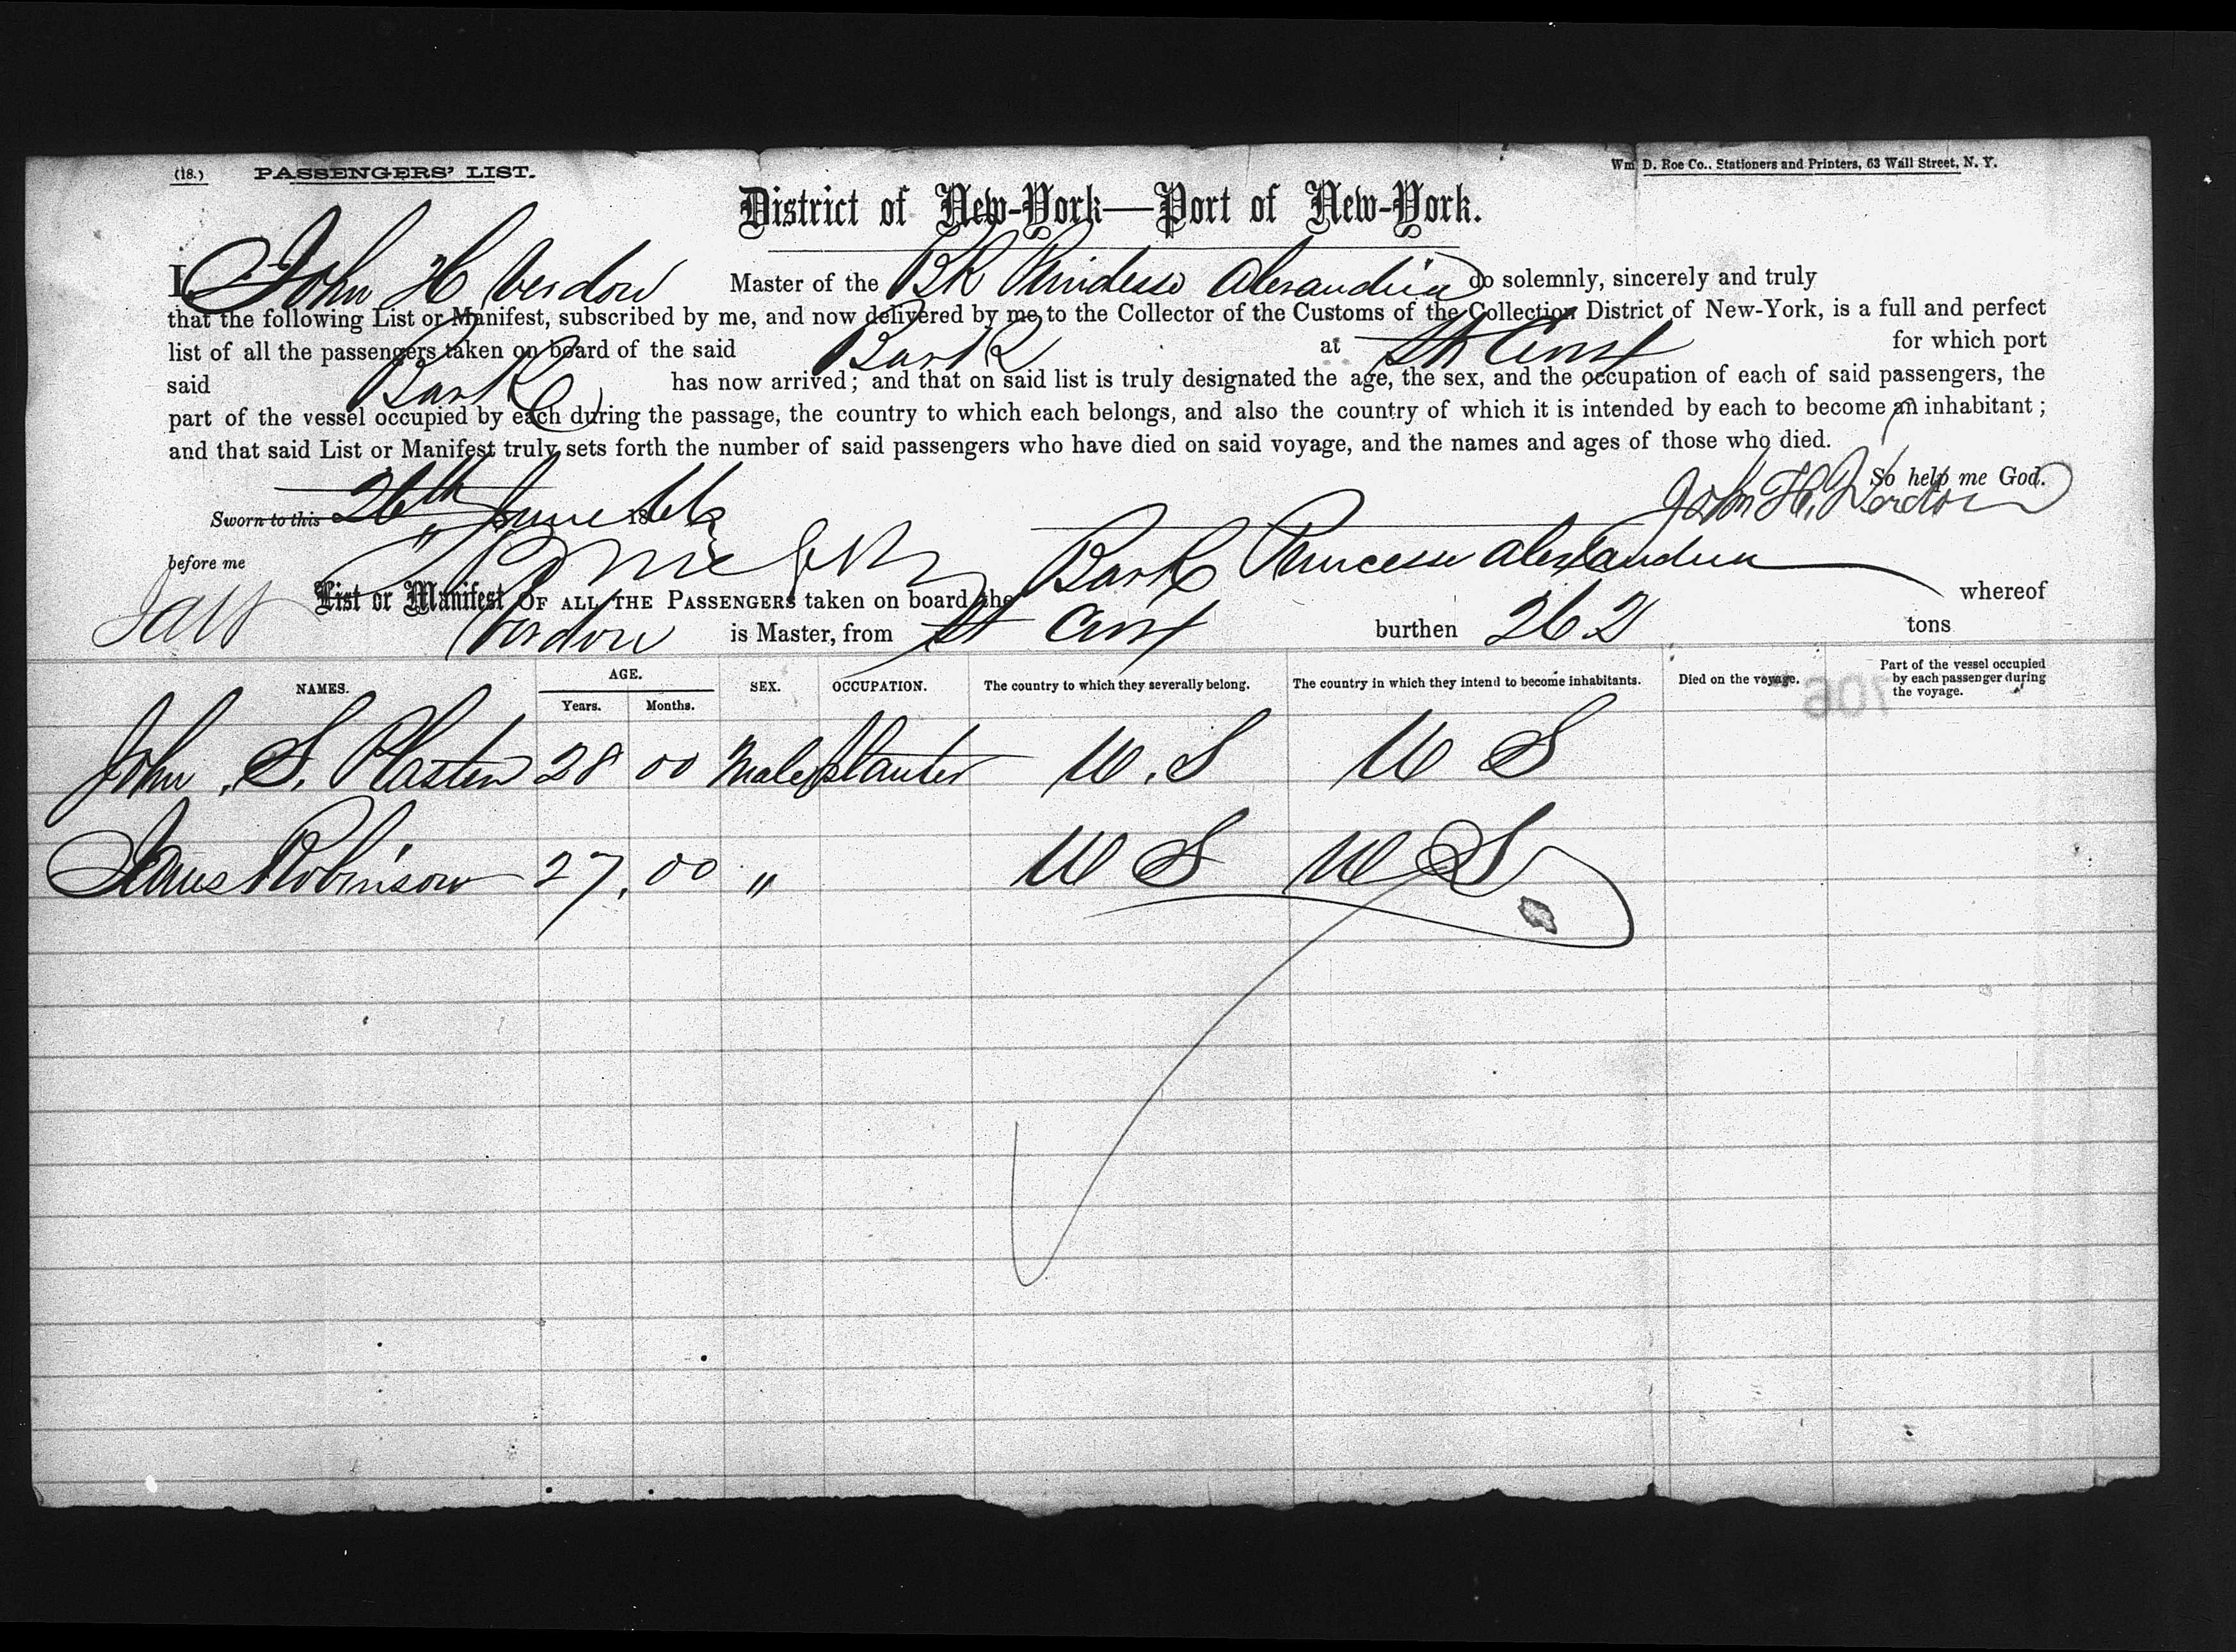 (18.) PASSENGERS' LIST. Wm D. Roe Co., Stationers and Printers, 63 Wall Street, N. Y.
District of New-York—Port of New-York.
I, John H Verdon Master of the Bk Princess Alexandria do solemnly, sincerely and truly
that the following List or Manifest, subscribed by me, and now delivered by me to the Collector of the Customs of the Collection District of New-York, is a full and perfect
list of all the passengers taken on board of the said Bark at St Croix for which port
said Bark has now arrived; and that on said list is truly designated the age, the sex, and the occupation of each of said passengers, the
part of the vessel occupied by each during the passage, the country to which each belongs, and also the country of which it is intended by each to become an inhabitant;
and that said List or Manifest truly sets forth the number of said passengers who have died on said voyage, and the names and ages of those who died.
So help me God.
Sworn to this 26th June 18 John H. Verdon
before me
List or Manifest OF ALL THE PASSENGERS taken on board the Bark Princess Alexandria whereof
Verdon is Master, from St Croix burthen 262 tons
NAMES. AGE. Years. Months. SEX. OCCUPATION. The country to which they severally belong. The country in which they intend to become inhabitants. Died on the voyage. Part of the vessel occupied by each passenger during the voyage.
706
John S. Plasten 28 00 Male Planter U.S U S
James Robinson 27. 00 " U S U S